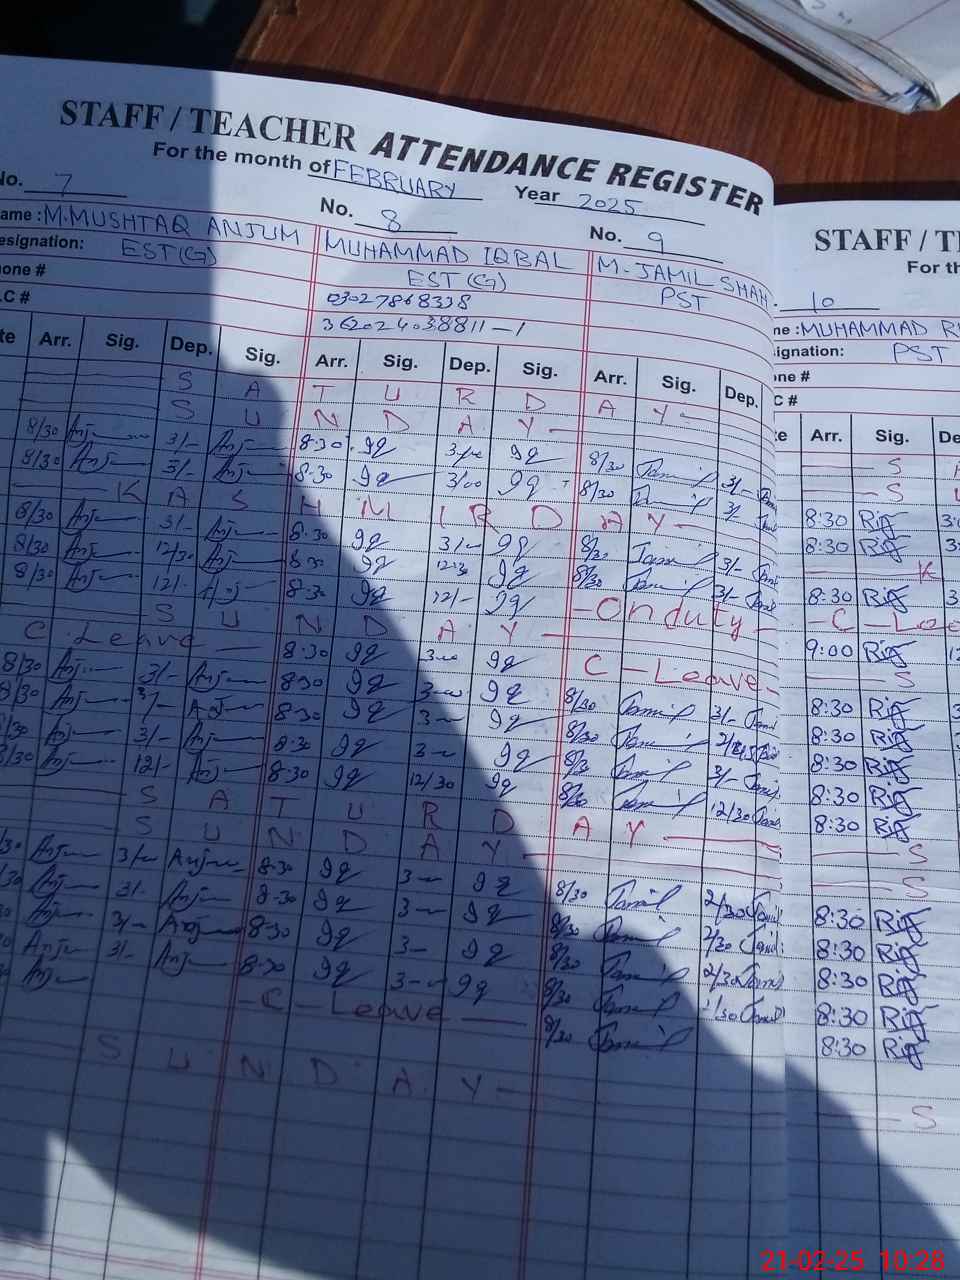 STAFF / TEACHER ATTENDANCE REGISTER
For the month of FEBRUARY Year 2025
No. 7 No. 8 No. 9
ame : M.MUSHTAQ ANJUM MUHAMMAD IQBAL M. JAMIL SHAH
esignation: EST(G) EST(G) PST
one # 03027868338
C # 36202403881 1-1
te Arr. Sig. Dep. Sig. Arr. Sig. Dep. Sig. Arr. Sig. Dep.
S A T U R D A Y
S U N D A Y
8/30 Anjum 3/- Anjum 8.30 Iq 3/00 Iq 8/30 Jamil 3/-
8/30 Anjum 3/- Anjum 8.30 Iq 3/00 Iq 8/30 Jamil 3/-
K A S H M I R D A Y
8/30 Anjum 3/- Anjum 8.30 Iq 3/- Iq 8/30 Jamil 3/-
8/30 Anjum 12/30 Anjum 8.30 Iq 12.30 Iq 8/30 Jamil 3/-
8/30 Anjum 12/- 8.30 Iq 12/- Iq - On duty -
S U N D A Y
C. Leave 8.30 Iq 3 Iq C - Leave -
8/30 Anjum 3/- Anjum 8.30 Iq 3 Iq 8/30 Jamil 3/-
8/30 Anjum Anjum 8.30 Iq 3 Iq 8/30 Jamil
/30 Anjum 3/- Anjum 8.30 Iq 3 Iq 8/3 Jamil 3/-
/30 Anjum 12/- Anjum 8.30 Iq 12/30 Iq 8/30 Jamil 12/30
S A T U R D A Y
S U N D A Y
/30 Anjum 3/- Anjum 8.30 Iq 3 Iq 8/30 Jamil 2/30
/30 Anjum 3/- Anjum 8.30 Iq 3 Iq 8/30 Jamil 2/30
Anjum 3/- Anjum 8.30 Iq 3 Iq 8/30 Jamil 2/30
Anjum 3/- Anjum 8.30 Iq 3 Iq 8/30 Jamil /30
Anjum - C - Leave 8/30 Jamil
S U N D A Y
STAFF / T
For th
10
ne : MUHAMMAD R
signation: PST
one #
C #
Arr. Sig. De
S
S
8:30 Rif
8:30 Rif
K
8:30 Rif
- C - Le
9:00 Rif
S
8:30 Rif
8:30 Rif
8:30 Rif
8:30 Rif
8:30 Rif
S
S
8:30 Rif
8:30 Rif
8:30 Rif
8:30 Rif
8:30 Rif
S
21-02-25 10:28